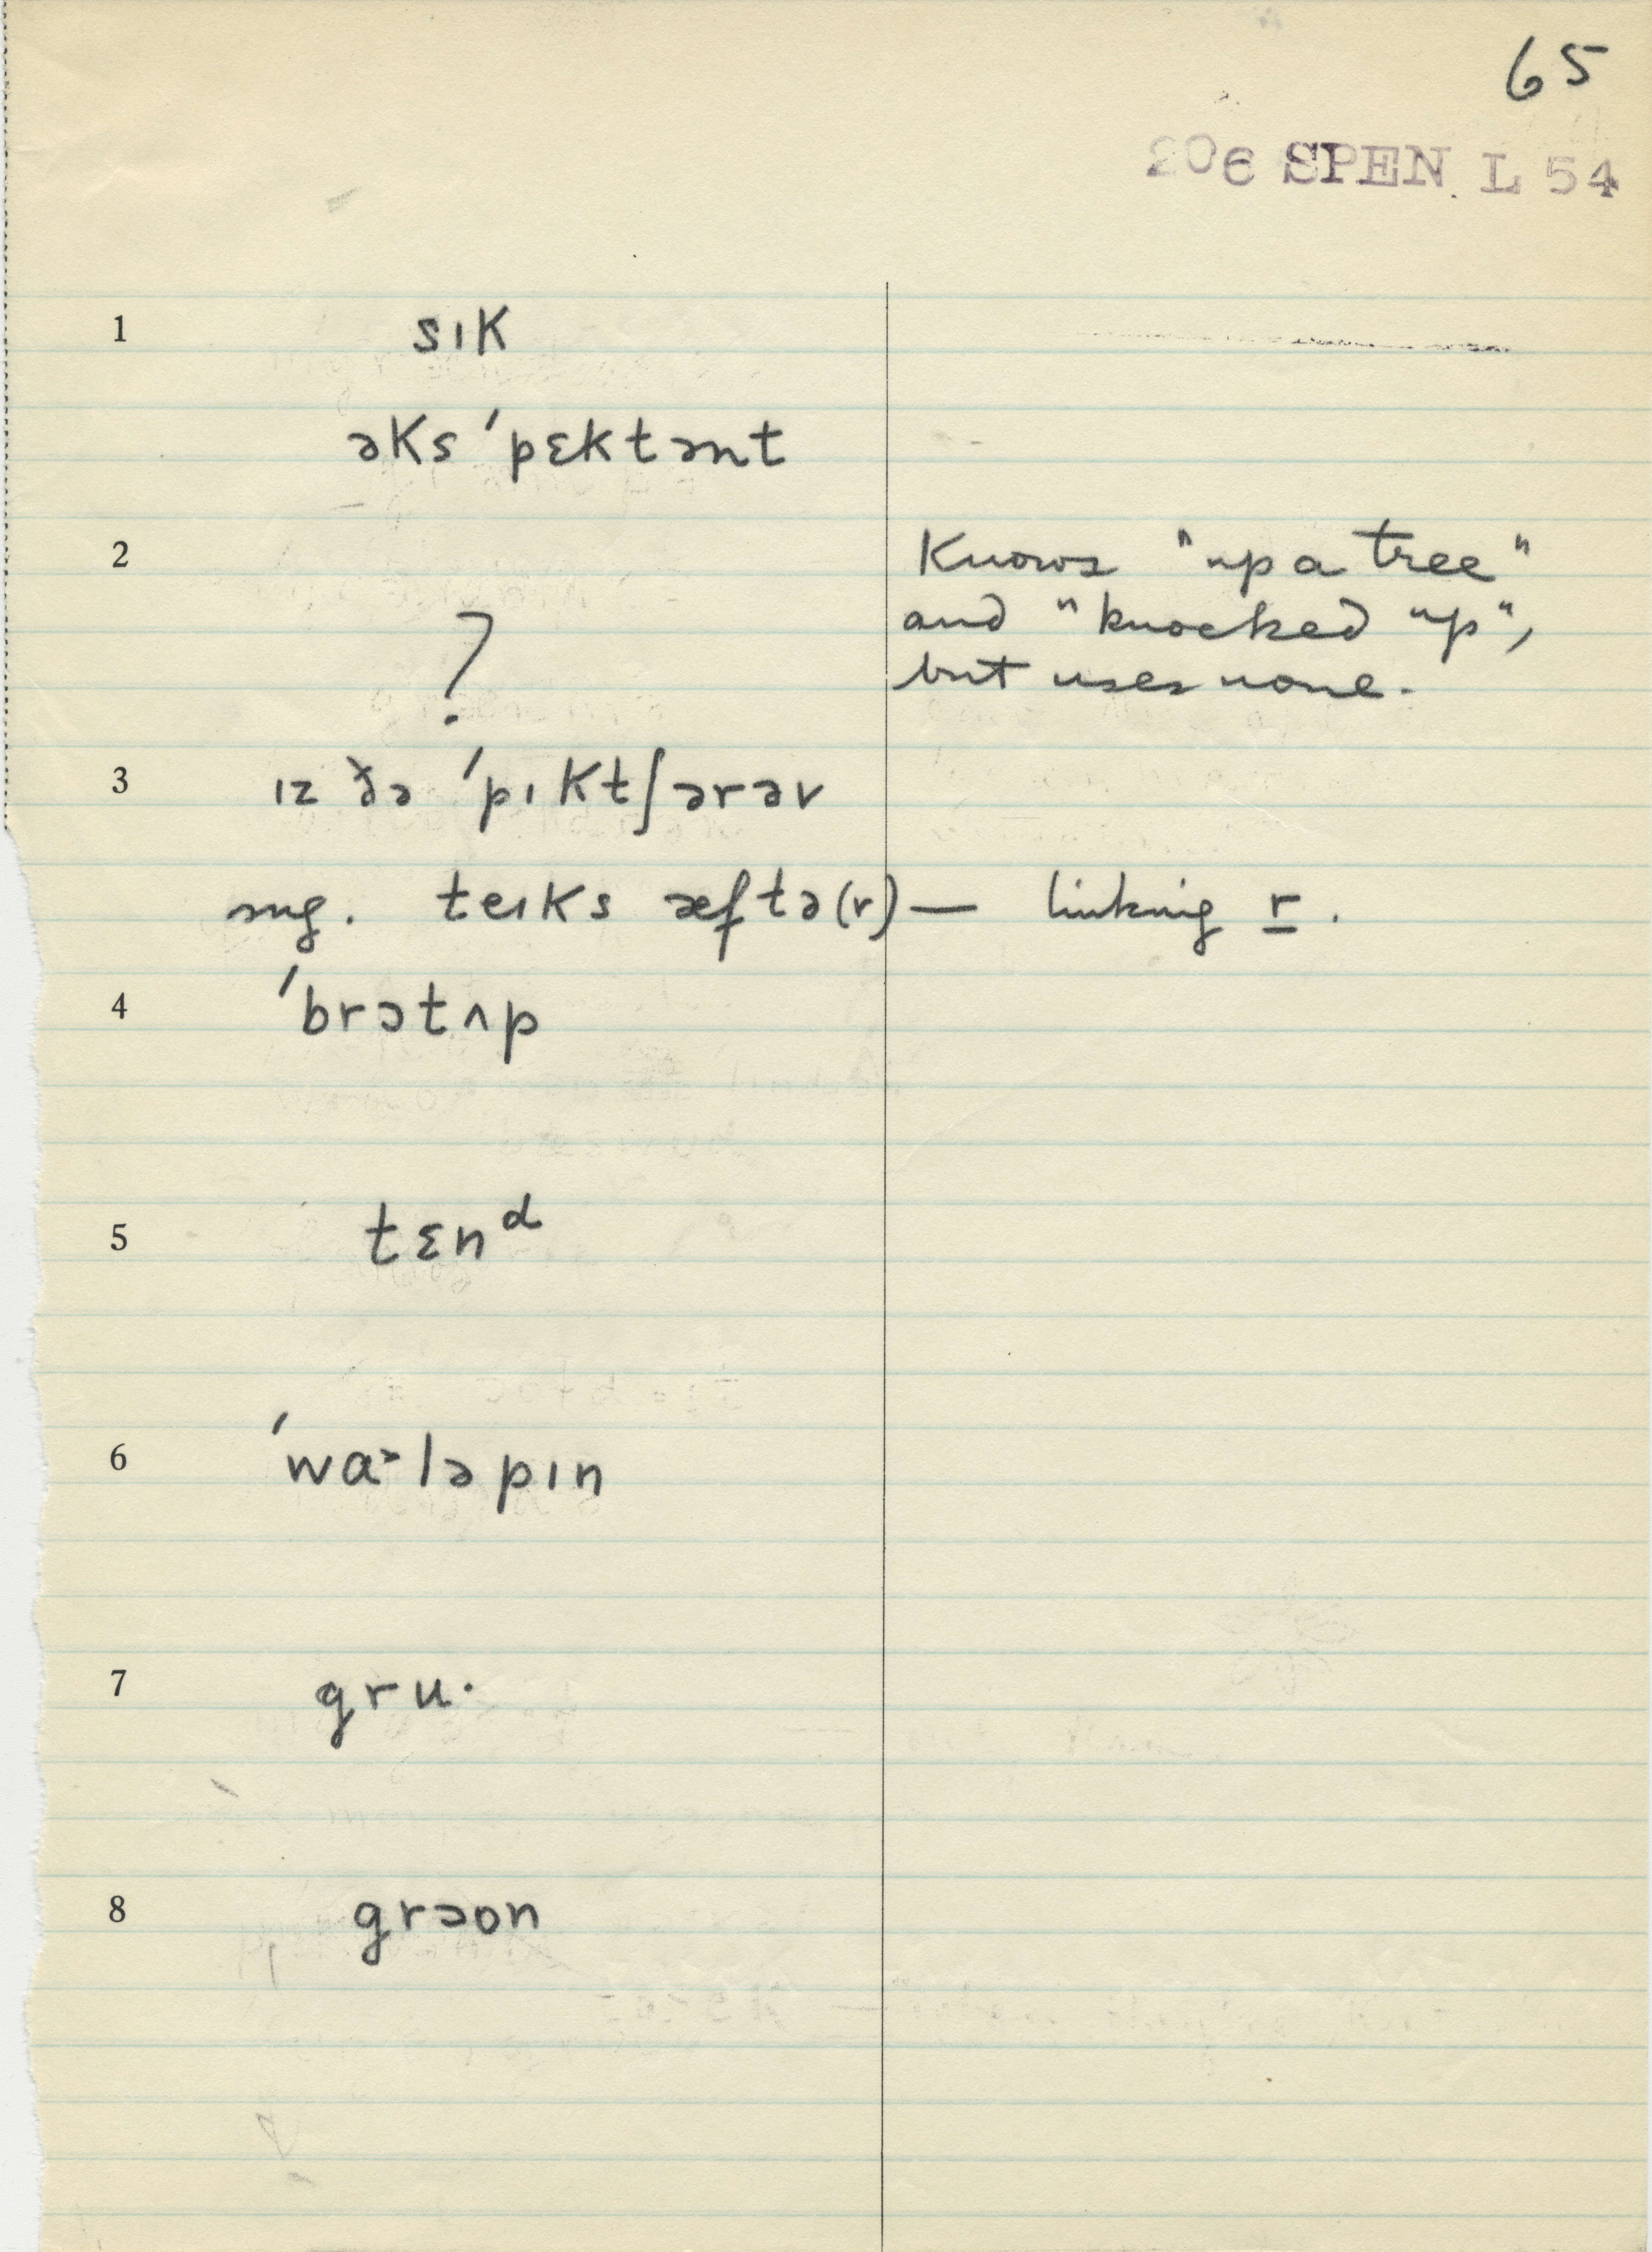 65
206 SPEN L 54
1 sık
əks ˈpɛktənt
2 Knows "up a tree"
? and "knocked up",
but uses none.
3 ız ðə ˈpıktʃərəv
sug. teıks æftə(r) — linking r.
4 ˈbrɔtʌp
5 tɛnᵈ
6 ˈwa˃ləpın
7 gru·
8 grəʊn